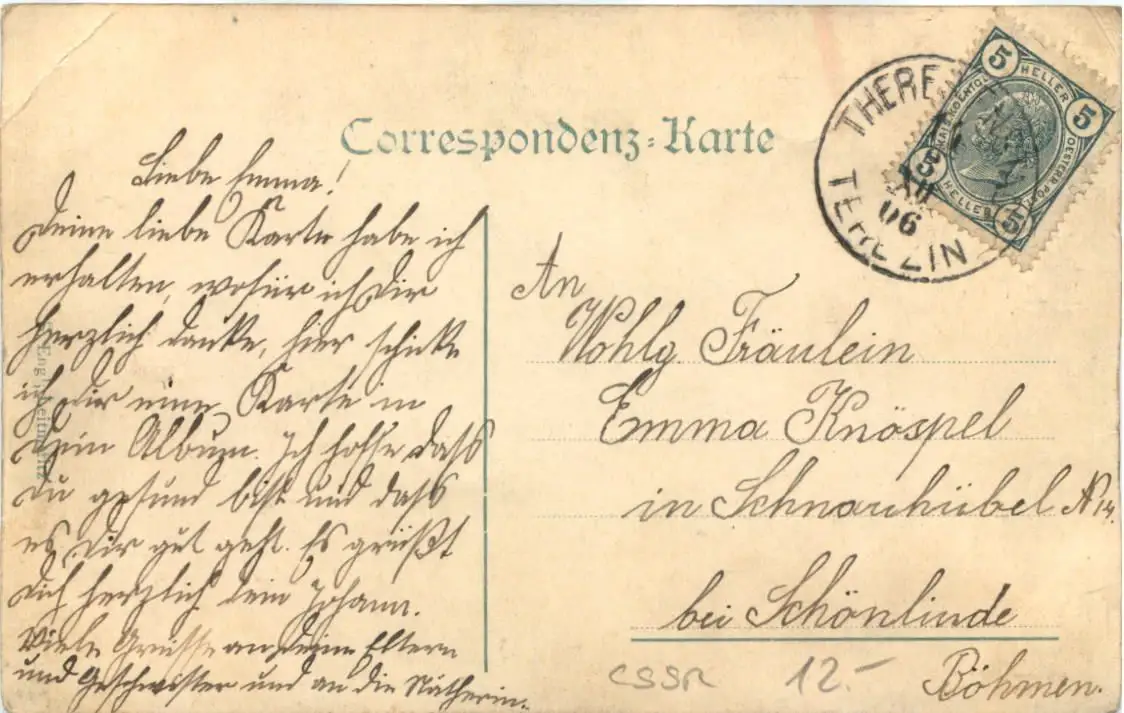 Correspondenz-Karte
Liebe Emma!
Deine liebe Karte habe ich
erhalten, wofür ich Dir
herzlich danke, hier schicke
ich Dir eine Karte in
Dein Album. Ich hoffe dass
du gesund bist und dass
es Dir gut geht. Es grüßt
dich herzlich dein Johann.
Viele Grüsse an Deine Eltern
und Geschwister und an die Nätherin.
An
Wohlg Fräulein
Emma Knöspel
in Schnauhübel Nr 14.
bei Schönlinde
Böhmen.
ČSSR 12.-
THERE
XII
06
TEREZIN
5 HELLER 5
5 HELLER 5
OESTERR POST
Eng
Leitmeritz